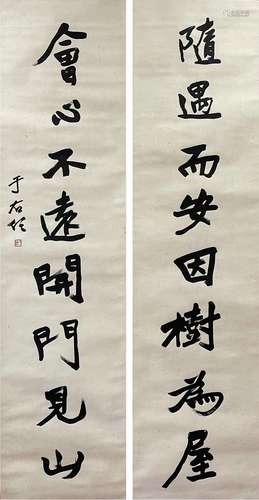 隨遇而安因樹為屋
會心不遠開門見山
于右任